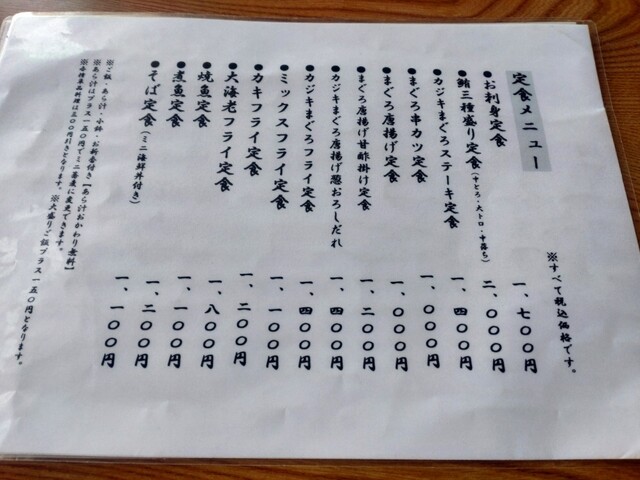 定食メニュー
※すべて税込価格です。
●お刺身定食 一、七〇〇円
●鮪三種盛り定食(中とろ・大トロ・中落ち) 二、〇〇〇円
●カジキまぐろステーキ定食 一、四〇〇円
●まぐろ串カツ定食 一、〇〇〇円
●まぐろ唐揚げ定食 一、〇〇〇円
●まぐろ唐揚げ甘酢掛け定食 一、二〇〇円
●カジキまぐろ唐揚げ葱おろしだれ 一、四〇〇円
●カジキまぐろフライ定食 一、四〇〇円
●ミックスフライ定食 一、一〇〇円
●カキフライ定食 一、二〇〇円
●大海老フライ定食 一、八〇〇円
●焼魚定食 一、一〇〇円
●煮魚定食 一、二〇〇円
●そば定食(ミニ海鮮丼付き) 一、一〇〇円
※ご飯・あら汁・小鉢・お新香付き【あら汁おかわり無料】
※あら汁はプラス一五〇円でミニ蕎麦に変更できます。
※各種単品料理は三〇〇円引きとなります。※大盛りご飯プラス一五〇円となります。